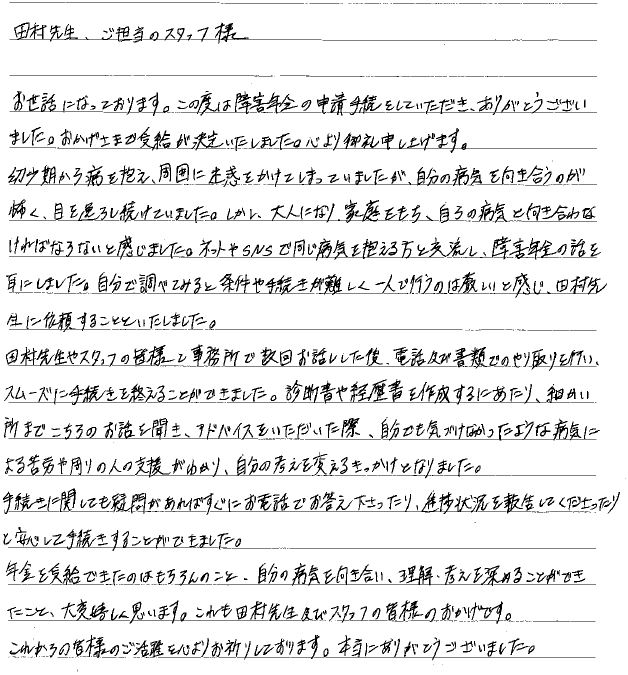 田村先生、ご担当のスタッフ様
お世話になっております。この度は障害年金の申請手続をしていただき、ありがとうござい
ました。おかげさまで受給が決定いたしました。心より御礼申し上げます。
幼少期から病を抱え、周囲に迷惑をかけてしまっていましたが、自分の病気を向き合うのが
怖く、目を逸らし続けていました。しかし、大人になり、家庭をもち、自らの病気と向き合わな
ければならないと感じました。ネットやSNSで同じ病気を抱える方と交流し、障害年金の話を
耳にしました。自分で調べてみると条件や手続きが難しく一人で行うのは厳しいと感じ、田村先
生に依頼することといたしました。
田村先生やスタッフの皆様と事務所で数回お話しした後、電話及び書類でのやり取りを行い、
スムーズに手続きを終えることができました。診断書や経歴書を作成するにあたり、細かい
所までこちらのお話を聞き、アドバイスをいただいた際、自分でも気づけなかったような病気に
よる苦労や周りの人の支援がわかり、自分の考えを変えるきっかけとなりました。
手続きに関しても疑問があればすぐにお電話でお答え下さったり、進捗状況を報告してくださったり
と安心して手続きすることができました。
年金を受給できたのはもちろんのこと、自分の病気を向き合い、理解・考えを深めることができ
たこと、大変嬉しく思います。これも田村先生及びスタッフの皆様のおかげです。
これからの皆様のご活躍を心よりお祈りしております。本当にありがとうございました。